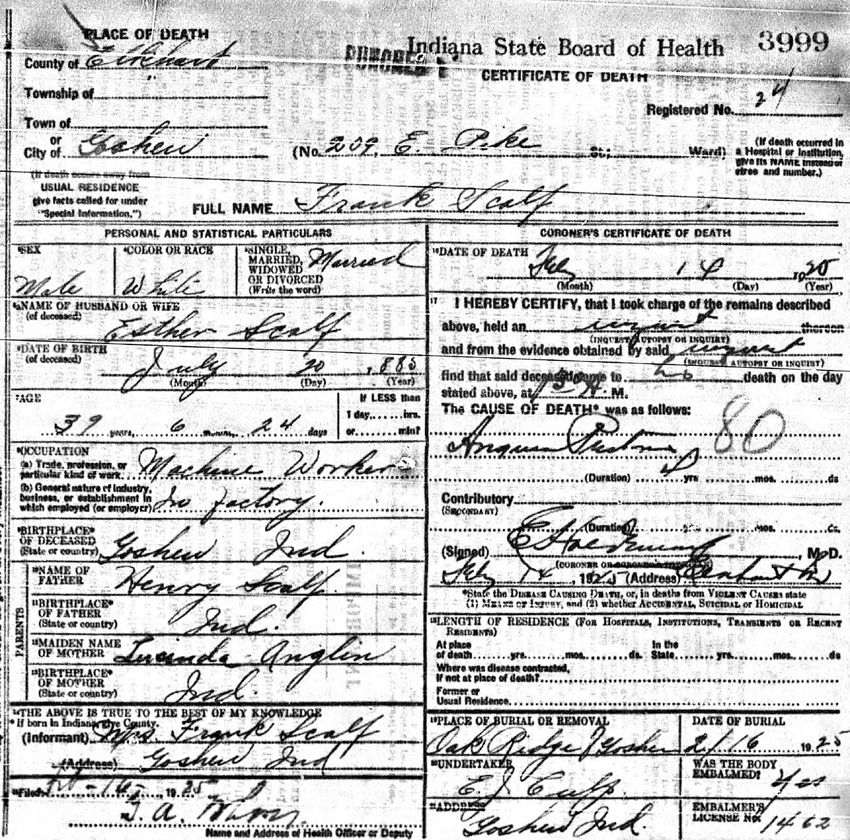 PLACE OF DEATH
Indiana State Board of Health 3999
County of Elkhart
CERTIFICATE OF DEATH
Township of "
Registered No. 24
Town of
or
City of Goshen (No. 209, E. Pike St; Ward) (If death occurred in a Hospital or Institution, give its NAME instead of stree and number.)
(If death occurs away from USUAL RESIDENCE give facts called for under "Special Information.")
FULL NAME Frank Scalf
PERSONAL AND STATISTICAL PARTICULARS
SEX Male
COLOR OR RACE White
SINGLE, MARRIED, WIDOWED OR DIVORCED (Write the word) Married
NAME OF HUSBAND OR WIFE (of deceased) Esther Scalf
DATE OF BIRTH (of deceased) July 20, 1885
(Month) (Day) (Year)
AGE 39 years, 6 months, 24 days
If LESS than 1 day,......hrs. or......min?
OCCUPATION
(a) Trade, profession, or particular kind of work Machine Worker
(b) General nature of industry, business, or establishment in which employed (or employer) In factory
BIRTHPLACE OF DECEASED (State or country) Goshen Ind.
PARENTS
NAME OF FATHER Henry Scalf
BIRTHPLACE OF FATHER (State or country) Ind.
MAIDEN NAME OF MOTHER Lucinda Anglin
BIRTHPLACE OF MOTHER (State or country) Ind.
THE ABOVE IS TRUE TO THE BEST OF MY KNOWLEDGE
If born in Indiana, give County.
(Informant) Mrs. Frank Scalf
(Address) Goshen Ind
Filed 16, 1925
Name and Address of Health Officer or Deputy
CORONER'S CERTIFICATE OF DEATH
DATE OF DEATH Feb 14 1925
(Month) (Day) (Year)
17 I HEREBY CERTIFY, that I took charge of the remains described
above, held an inquest thereon
(INQUEST AUTOPSY OR INQUIRY)
and from the evidence obtained by said inquest
(INQUEST AUTOPSY OR INQUIRY)
find that said deceased came to his death on the day
stated above, at M.
The CAUSE OF DEATH* was as follows: 80
Angina Pectoris
(Duration) yrs mos. ds
Contributory
(SECONDARY)
(Duration) yrs mos. ds.
(Signed) M.D.
(CORONER OR
Feb 14, 1925 (Address)
*State the DISEASE CAUSING DEATH, or, in deaths from VIOLENT CAUSES state
(1) MEANS OF INJURY, and (2) whether ACCIDENTAL, SUICIDAL or HOMICIDAL
LENGTH OF RESIDENCE (FOR HOSPITALS, INSTITUTIONS, TRANSIENTS OR RECENT RESIDENTS)
At place of death yrs. mos. ds. In the State yrs. mos. ds
Where was disease contracted, If not at place of death?
Former or Usual Residence
PLACE OF BURIAL OR REMOVAL Oak Ridge Goshen
DATE OF BURIAL 2/16 1925
UNDERTAKER E. J. Culp
WAS THE BODY EMBALMED? Yes
ADDRESS Goshen Ind.
EMBALMER'S LICENSE No. 1462